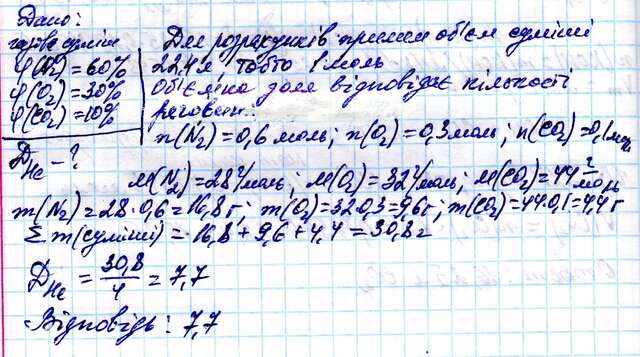 Дано:
газова суміш
φ(N2) = 60%
φ(O2) = 30%
φ(CO2) = 10%
DHe - ?
Для розрахунків приймем об'єм суміші
22,4 л, тобто 1 моль
Об'ємна доля відповідає кількості
речовин..
n(N2) = 0,6 моль; n(O2) = 0,3 моль; n(CO2) = 0,1 моль
M(N2) = 28 г/моль; M(O2) = 32 г/моль; M(CO2) = 44 г/моль
m(N2) = 28·0,6 = 16,8 г; m(O2) = 32·0,3 = 9,6 г; m(CO2) = 44·0,1 = 4,4 г
Σ m(суміші) = 16,8 + 9,6 + 4,4 = 30,8 г
DHe = 30,8/4 = 7,7
Відповідь: 7,7